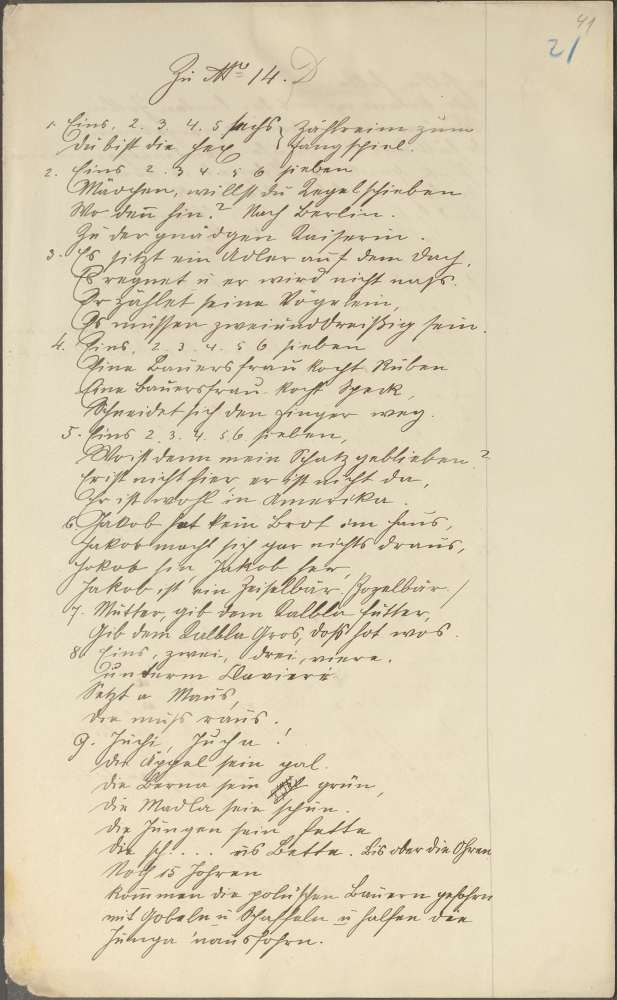 41
21
Zu No 14. D
1. Eins, 2. 3. 4. 5 sechs } Zählreime zum
Du bist die Hex } Fangspiel.
2. Eins 2. 3 4. 5 6 sieben
Mädchen, willst du Kegel schieben
Wo denn hin? Nach Berlin.
Zu der gnädgen Kaiserin.
3. Es sitzt ein Adler auf dem Dach,
Es regnet u er wird nicht naß.
Er zählet seine Vögelein,
Es müssen zweiunddreißig sein.
4. Eins, 2. 3. 4. 5 6 sieben
Eine Bauersfrau kocht Rüben
Eine Bauersfrau kocht Speck,
Schneidet sich den Finger weg.
5. Eins 2. 3. 4. 5. 6 sieben,
Wo ist denn mein Schatz geblieben?
Er ist nicht hier, er ist nicht da,
Er ist wohl in Amerika.
6. Jakob hat kein Brot im Haus,
Jakob macht sich gar nichts draus,
Jakob hin, Jakob her,
Jakob ist ein Zeiselbär. /Zozelbär./
7. Mutter, gib dem Kalbla Futter,
Gib dem Kalbla Gros, doß hot wos.
8. Eins, zwei, drei, viere.
Unterm Klaviere
Setzt a Maus,
Die muß raus.
9. Juchi, Jucha!
Die Äppel sein gal.
Die Berna sein grün,
Die Madla sein schün.
Die Jungen sein fette
Die sch... ei's Bette. Bis oder die Ohren
Noch 15 Johren
Kommen die polu'schen Bauern gefohrn
mit Gobeln u Schaffeln u halfen die
Junga 'nausfohrn.